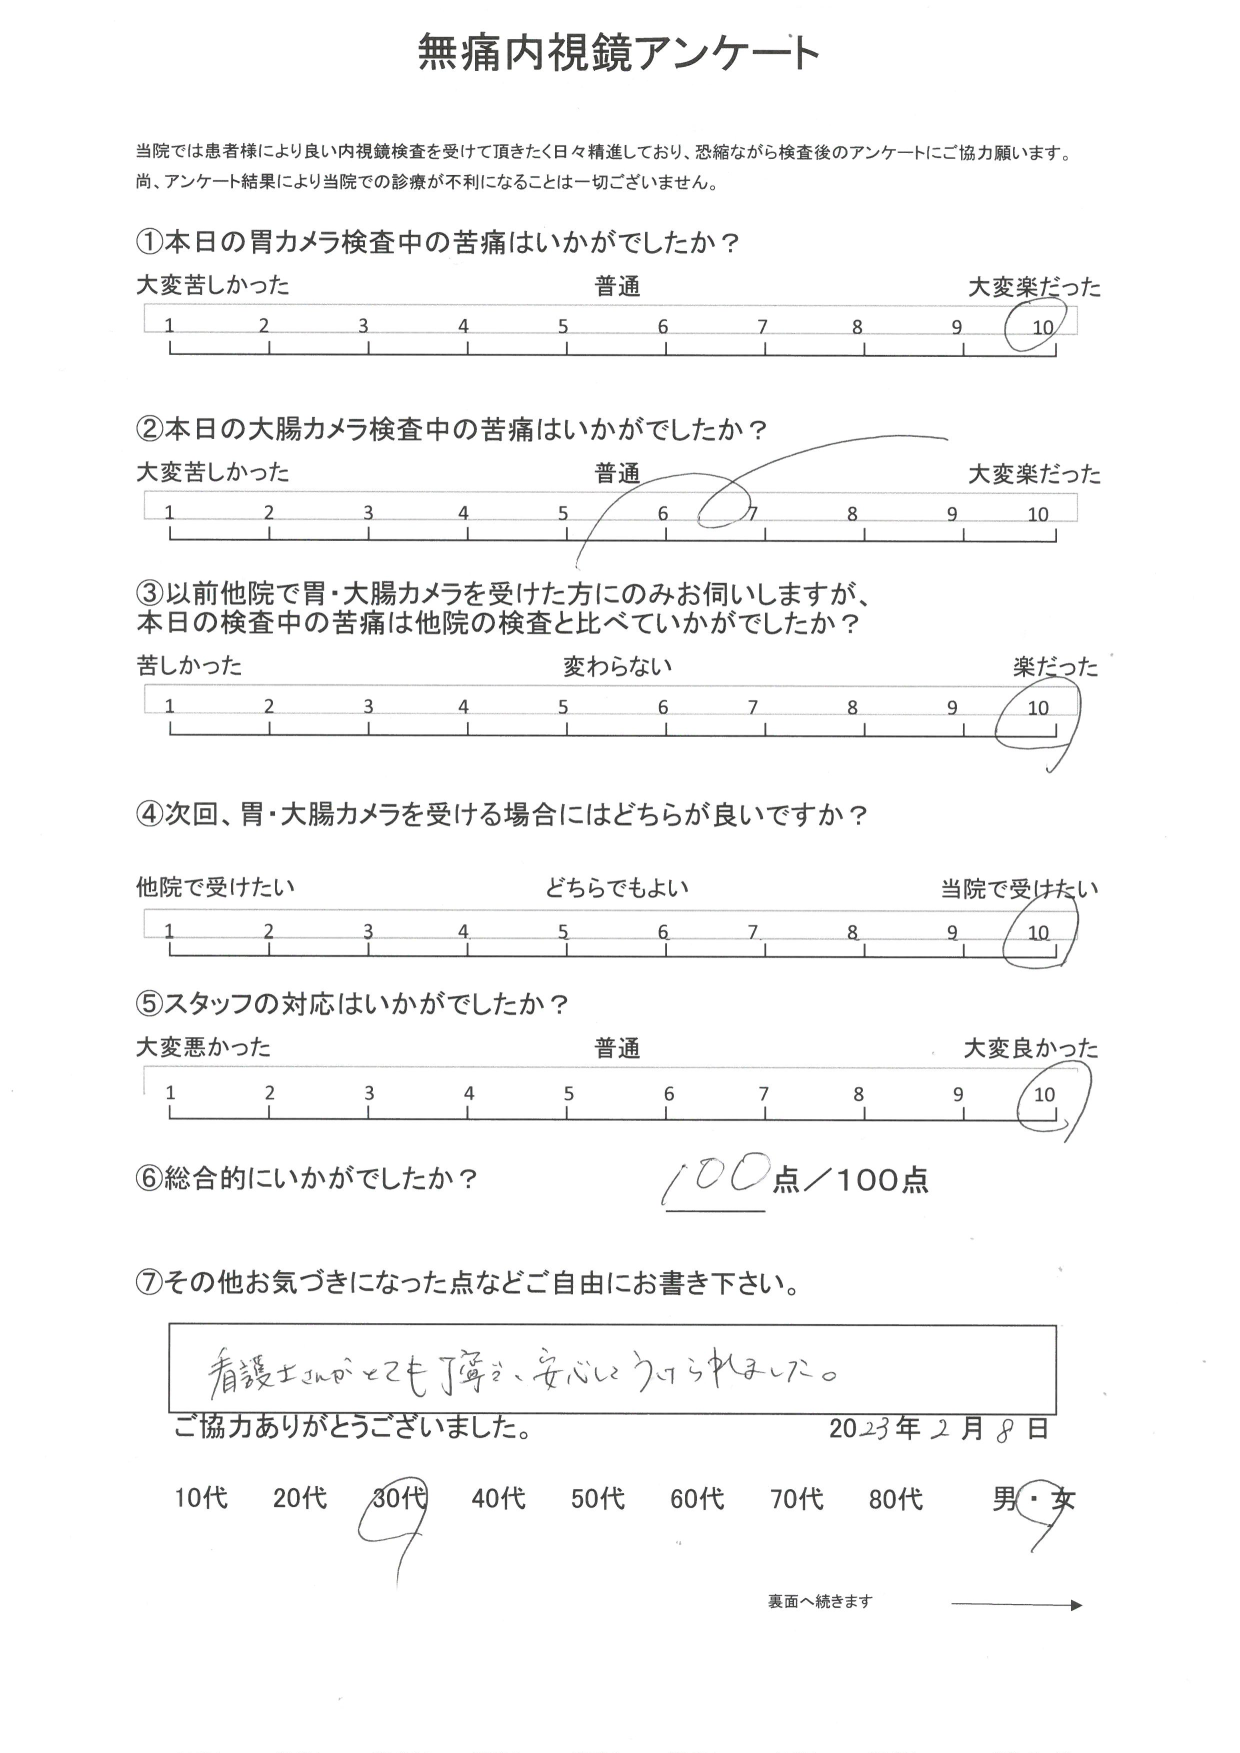 無痛内視鏡アンケート
当院では患者様により良い内視鏡検査を受けて頂きたく日々精進しており、恐縮ながら検査後のアンケートにご協力願います。
尚、アンケート結果により当院での診療が不利になることは一切ございません。
①本日の胃カメラ検査中の苦痛はいかがでしたか？
大変苦しかった 普通 大変楽だった
1 2 3 4 5 6 7 8 9 10
②本日の大腸カメラ検査中の苦痛はいかがでしたか？
大変苦しかった 普通 大変楽だった
1 2 3 4 5 6 7 8 9 10
③以前他院で胃・大腸カメラを受けた方にのみお伺いしますが、
本日の検査中の苦痛は他院の検査と比べていかがでしたか？
苦しかった 変わらない 楽だった
1 2 3 4 5 6 7 8 9 10
④次回、胃・大腸カメラを受ける場合にはどちらが良いですか？
他院で受けたい どちらでもよい 当院で受けたい
1 2 3 4 5 6 7 8 9 10
⑤スタッフの対応はいかがでしたか？
大変悪かった 普通 大変良かった
1 2 3 4 5 6 7 8 9 10
⑥総合的にいかがでしたか？ 100点／100点
⑦その他お気づきになった点などご自由にお書き下さい。
看護士さんがとても丁寧で、安心してうけられました。
ご協力ありがとうございました。 2023年2月8日
10代 20代 30代 40代 50代 60代 70代 80代 男・女
裏面へ続きます